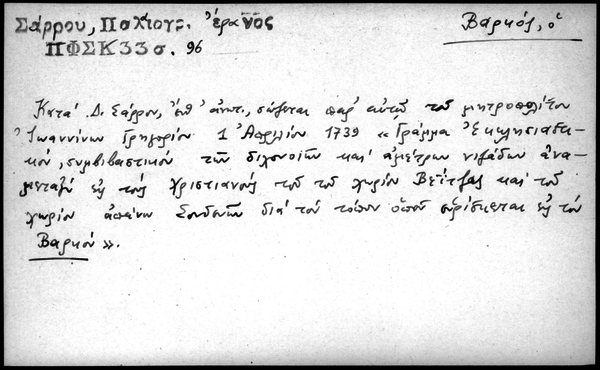 Σάρρου, Παλιογρ. Ἔρανος
ΠΦΣΚ33σ. 96
Βαρκός, ὁ
Κατά Δ. Σάρρον, ἔνθ' ἀνωτ., σώζεται παρ' αὐτῷ τοῦ μητροπολίτου
Ἰωαννίνων Γρηγορίου 1 Ἀπριλίου 1739 « Γράμμα Ἐκκλησιαστι-
κόν, συμβιβαστικόν τῶν διχονοιῶν καί ἀμέτρων νιβάδων ἀνα-
μεταξύ εἰς τούς χριστιανούς τοῦ τοῦ χωρίου Βεΐτζας καί τοῦ
χωρίου ἀπάνω Σουδενῶν διά τόν τόπον ὁποῦ εὑρίσκεται εἰς τόν
Βαρκόν ».